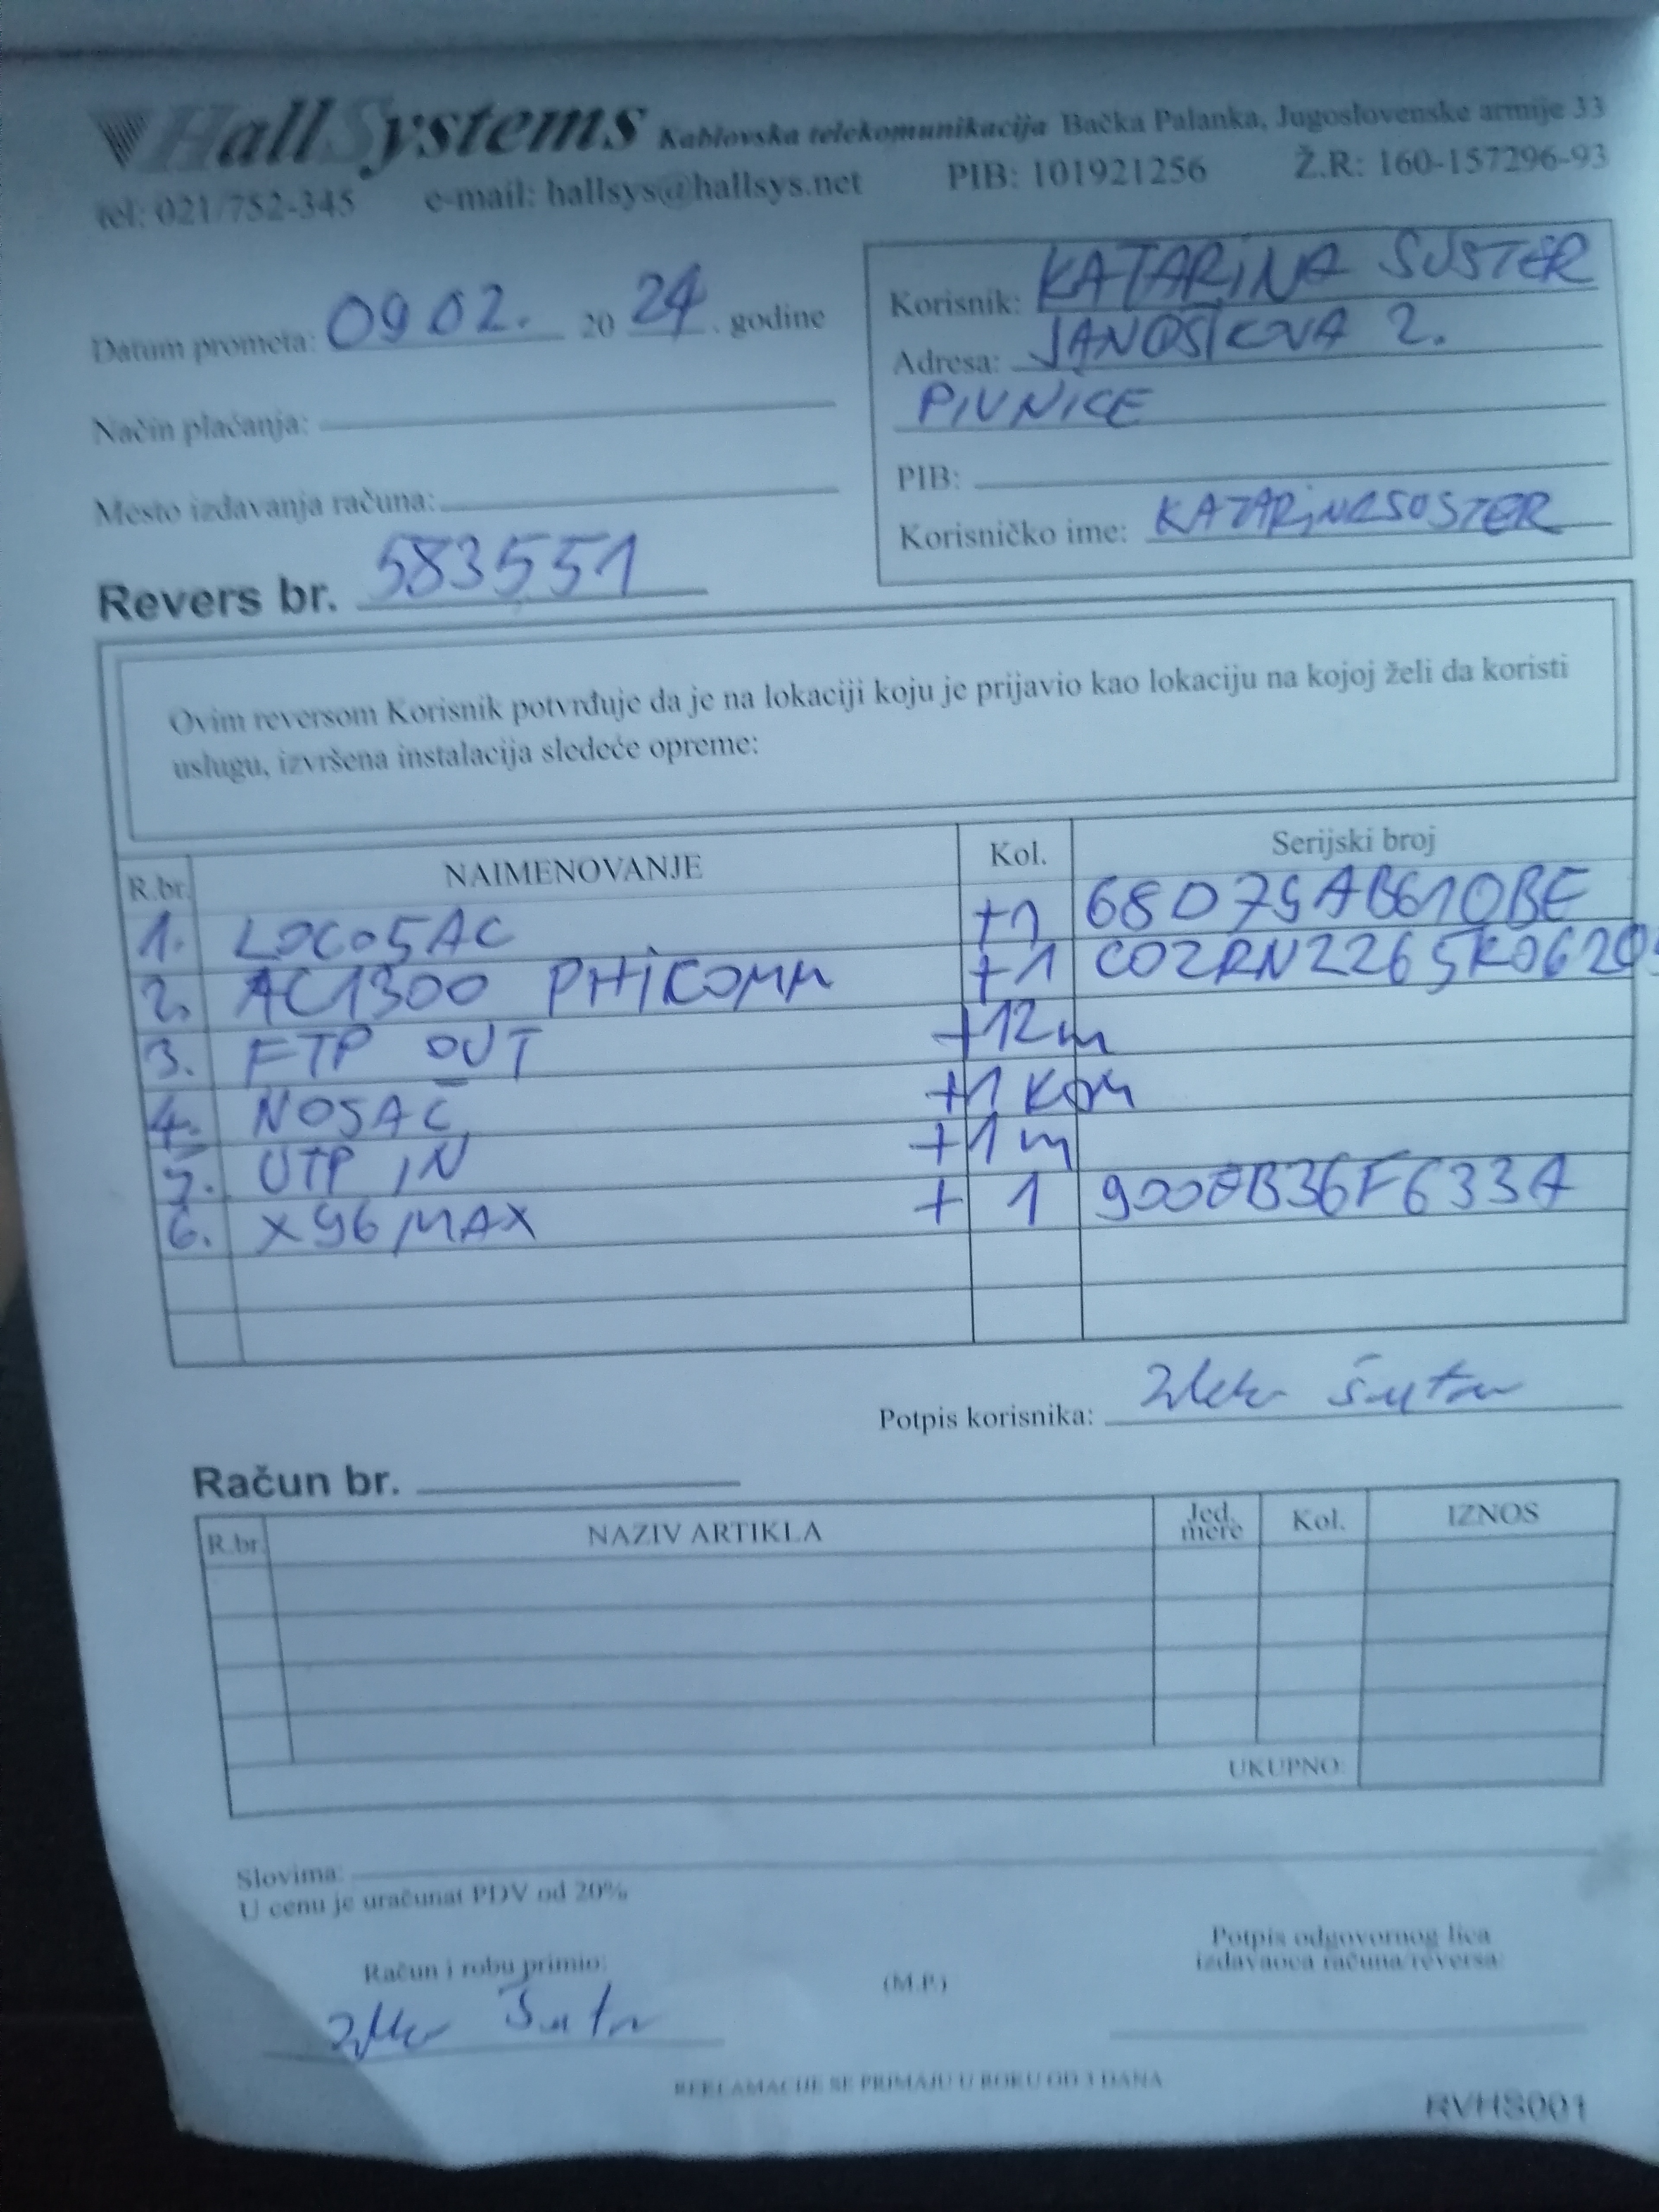 HallSystems Kablovska telekomunikacija Bačka Palanka, Jugoslovenske armije 33
tel: 021/752-345 e-mail: hallsys@hallsys.net PIB: 101921256 Ž.R: 160-157296-93
Datum prometa: 09 02. 20 24. godine
Način plaćanja:
Mesto izdavanja računa:
Revers br. 583551
Korisnik: KATARINA SUSTER
Adresa: JANOŠIKOVA 2.
PIVNICE
PIB:
Korisničko ime: KATARINASUSTER
Ovim reversom Korisnik potvrđuje da je na lokaciji koju je prijavio kao lokaciju na kojoj želi da koristi
uslugu, izvršena instalacija sledeće opreme:
R.br. NAIMENOVANJE Kol. Serijski broj
1. LOCO5AC +1 68D79AB610BE
2. AC1300 PHICOMM +1
3. FTP OUT +12m
4. NOSAČ +1 KOM
5. UTP IN +1m
6. X96 MAX + 1
Potpis korisnika:
Račun br.
R.br. NAZIV ARTIKLA Jed. mere Kol. IZNOS
UKUPNO:
Slovima:
U cenu je uračunat PDV od 20%
Račun i robu primio:
(M.P.)
Potpis odgovornog lica
izdavaoca računa/reversa:
REKLAMACIJE SE PRIMAJU U ROKU OD 3 DANA
RVHS001